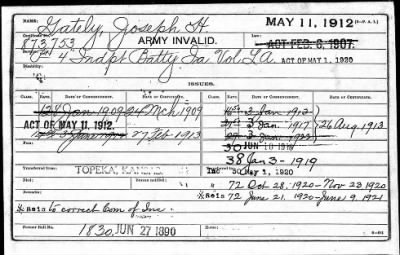 Name: Gately, Joseph H. MAY 11, 1912
Certificate No. 673,753 ARMY INVALID. ACT FEB. 6, 1907.
4" Indpt Batty Ia. Vol. L.A. ACT OF MAY 1, 1920
ISSUES.
CLASS. DATE OF COMMENCEMENT. DATE OF CERTIFICATE. CLASS. DATE OF COMMENCEMENT. DATE OF CERTIFICATE.
Jan 1909 24 Mch 1909 Jan 1912
ACT OF MAY 11, 1912. Jan 1917 26 Aug 1913
27 Feb 1913
30 JUN 10 1918
38 Jan 3-1919
Transferred from TOPEKA, KANSAS Inc 50 May 1, 1920
Died Person notified
72 Oct 28, 1920-Nov 23 1920
Reis to correct Com of Inc Reis 72 June 21, 1920-June 9, 1921
Former Roll No. 1830, JUN 27 1890